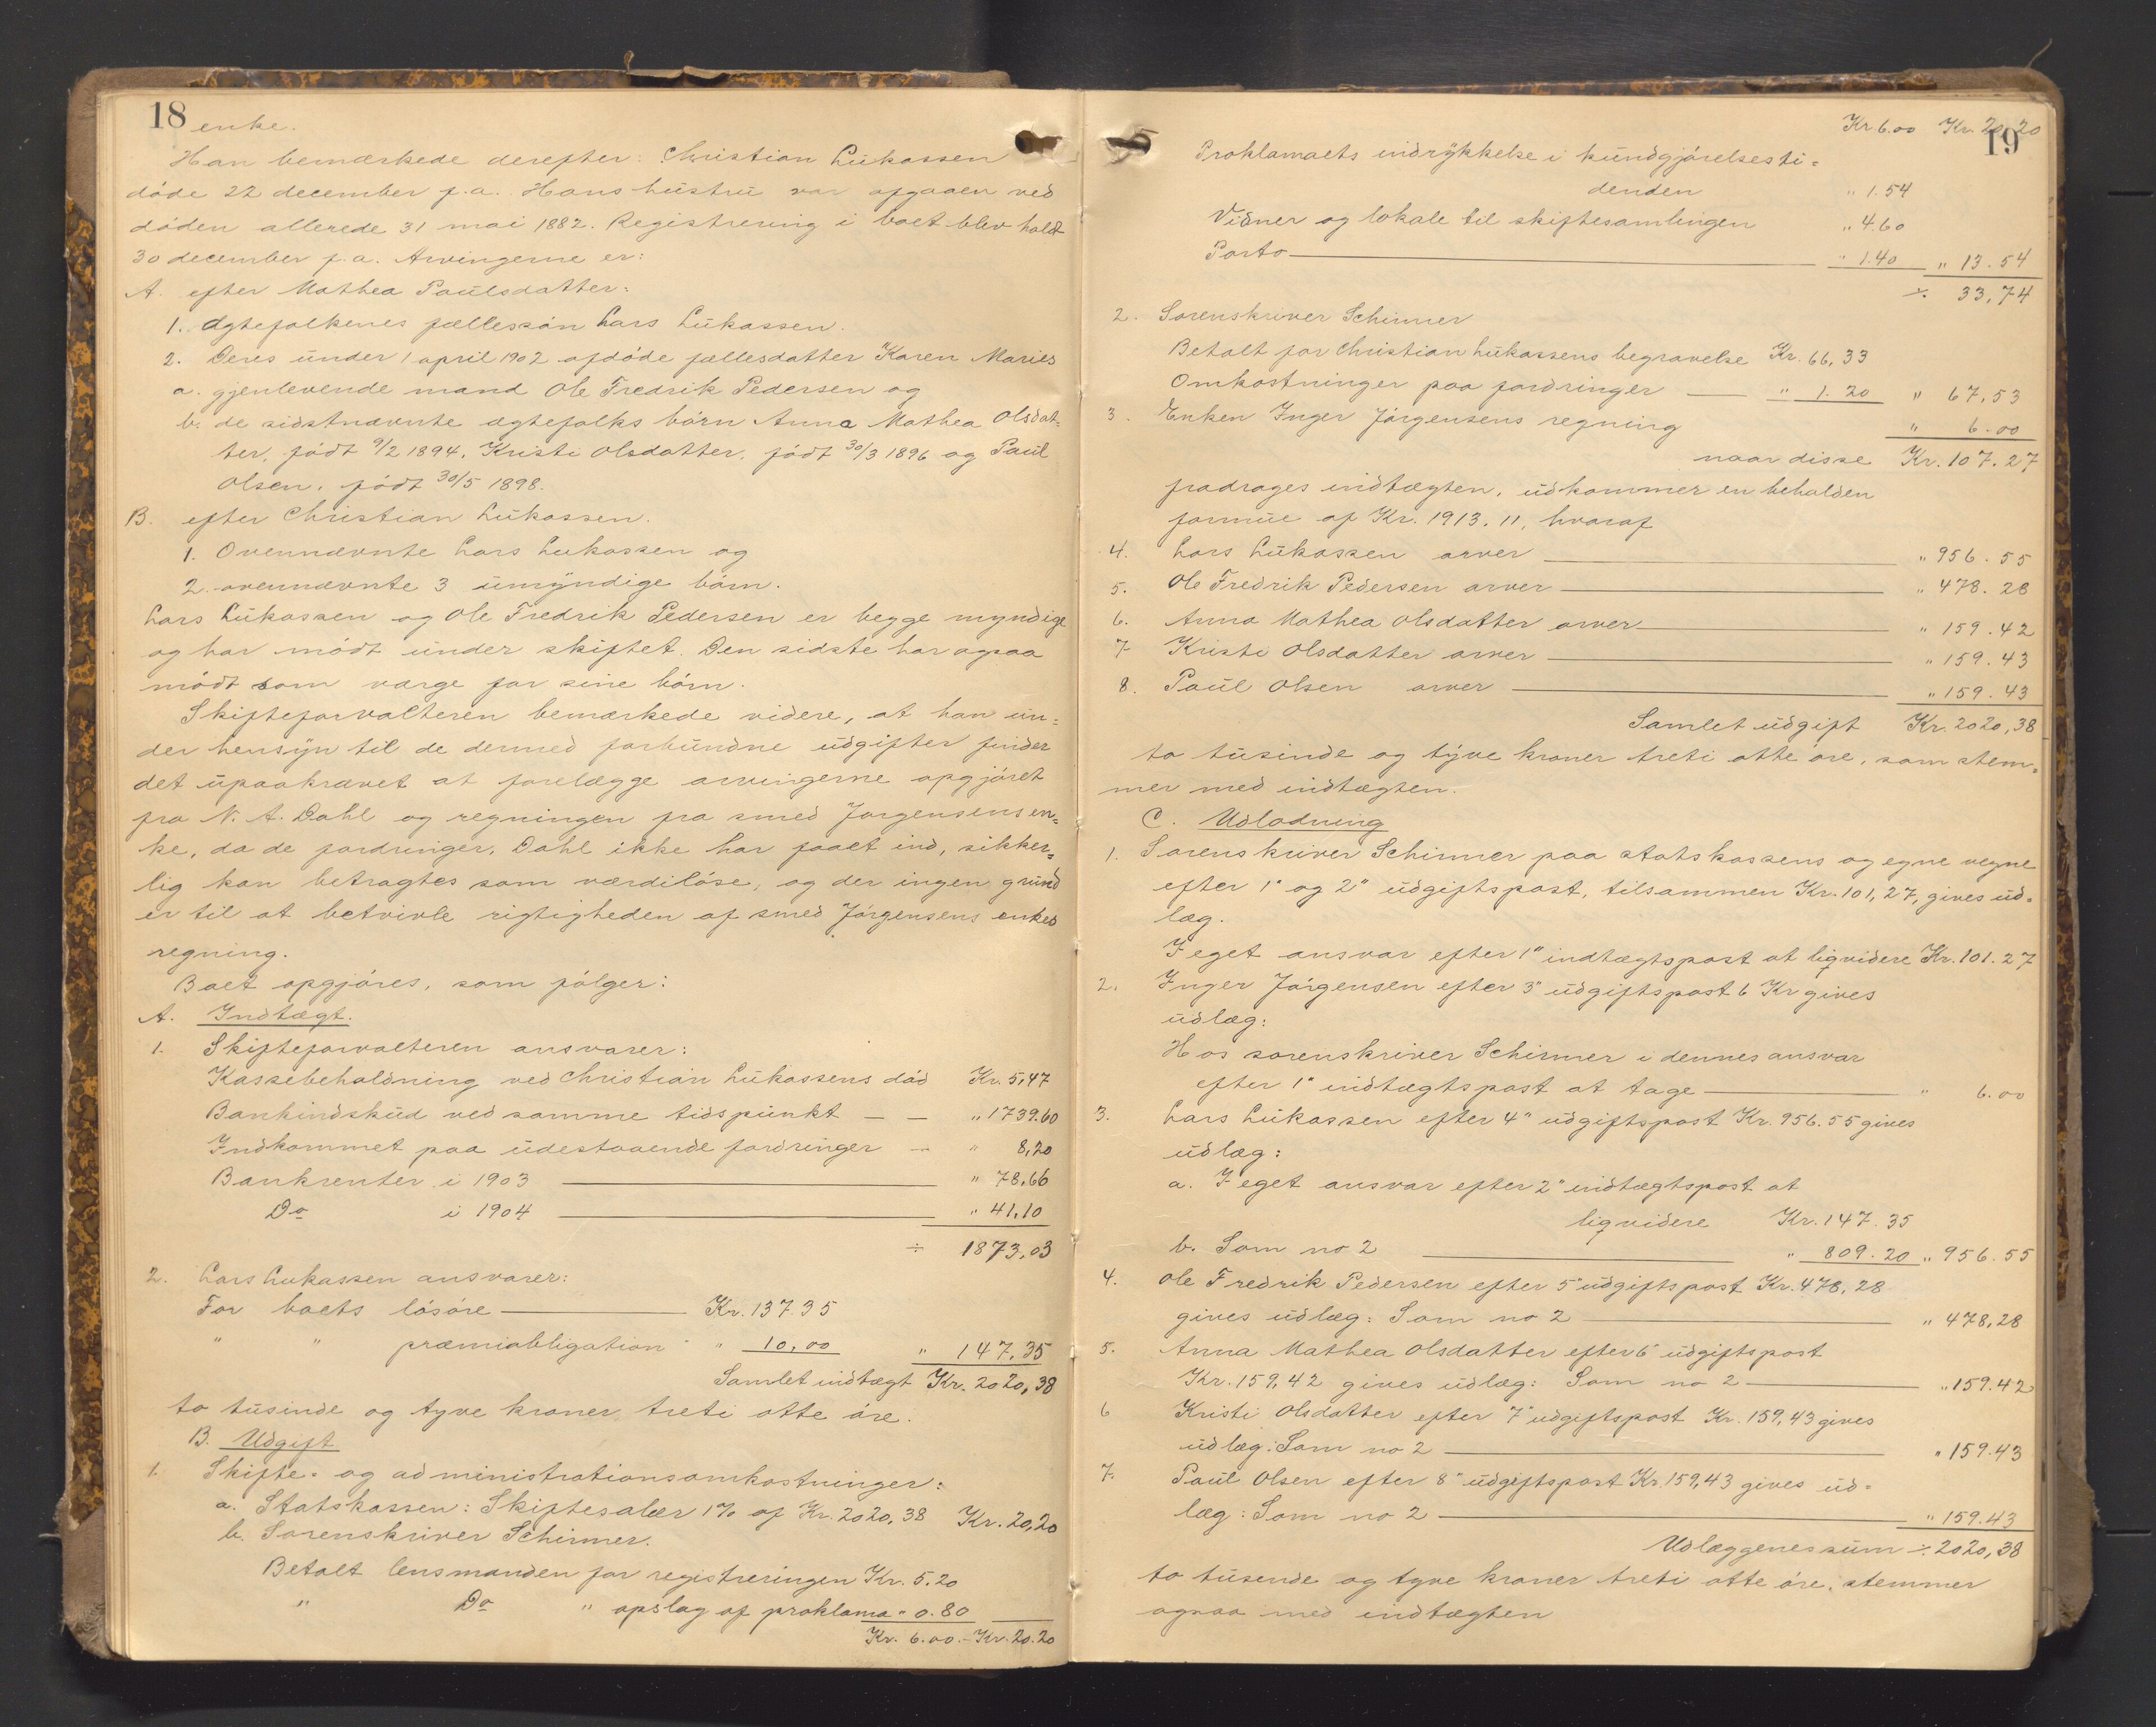 18
enke.
Han bemærkede derefter: Christian Lukassen
døde 22 december f.a. Hans hustru var afgaaen ved
døden allerede 31 mai 1882. Registrering i boet blev holdt
30 december f.a. Arvingerne er:
A. efter Mathea Paulsdatter:
1. Ægtefolkenes fællessøn Lars Lukassen.
2. Deres under 1 april 1902 afdøde fællesdatter Karen Maries
a. gjenlevende mand Ole Fredrik Pedersen og
b. de sidstnævnte ægtefolks børn Anna Mathea Olsdat=
ter, født 9/2 1894, Kristi Olsdatter, født 30/3 1896 og Paul
Olsen, født 30/5 1898.
B. efter Christian Lukassen.
1. Ovennævnte Lars Lukassen og
2. ovennævnte 3 umyndige børn.
Lars Lukassen og Ole Fredrik Pedersen er begge myndige
og har mødt under skiftet. Den sidste har ogsaa
mødt som værge for sine børn.
Skifteforvalteren bemærkede videre, at han un=
der hensyn til de dermed forbundne udgifter finder
det upaakrævet at forelægge arvingerne opgjøret
fra N. A. Dahl og regningen fra smed Jørgensens en=
ke, da de fordringer, Dahl ikke har faaet ind, sikker=
lig kan betragtes som værdiløse, og der ingen grund
er til at betvivle rigtigheden af smed Jørgensens enkes
regning.
Boet opgjøres, som følger:
A. Indtægt.
1. Skifteforvalteren ansvarer:
Kassebeholdning ved Christian Lukassens død Kr. 5,47
Bankindskud ved samme tidspunkt — — " 1739.60
Indkommet paa udestaaende fordringer — " 8,20
Bankrenter i 1903 " 78,66
Do i 1904 " 41.10
÷ 1873,03
2. Lars Lukassen ansvarer:
For boets løsøre Kr. 137.35
" " præmiobligation " 10,00 " 147,35
Samlet indtægt Kr. 2020,38
to tusinde og tyve kroner treti otte øre.
B. Udgift
1. Skifte- og administrationsomkostninger:
a. Statskassen: Skiftesalær 1% af Kr. 2020,38 Kr. 20,20
b. Sorenskriver Schirmer.
Betalt lensmanden for registreringen Kr. 5.20
" Do " opslag af proklama " 0.80
Kr. 6.00.- Kr. 20.20
19
Kr 6.00 Kr. 20,20
Proklamaets indrykkelse i kundgjørelsesti=
denden " 1.54
Vidner og lokale til skiftesamlingen " 4.60
Porto " 1.40 " 13.54
÷ 33,74
2. Sorenskriver Schirmer
Betalt for Christian Lukassens begravelse Kr. 66,33
Omkostninger paa fordringer — " 1.20 " 67,53
3. Enken Inger Jørgensens regning " 6.00
naar disse Kr. 107.27
fradrages indtægten, udkommer en beholden
formue af Kr. 1913.11, hvoraf
4. Lars Lukassen arver " 956.55
5. Ole Fredrik Pedersen arver " 478.28
6. Anna Mathea Olsdatter arver " 159.42
7 Kristi Olsdatter arver " 159.43
8. Paul Olsen arver " 159.43
Samlet udgift Kr. 2020,38
to tusinde og tyve kroner treti otte øre, som stem=
mer med indtægten.
C. Udlodning
1. Sorenskriver Schirmer paa statskassens og egne vegne
efter 1" og 2" udgiftspost, tilsammen Kr. 101,27, gives ud=
læg.
I eget ansvar efter 1" indtægtspost at liqvidere Kr. 101.27
2. Inger Jørgensen efter 3" udgiftspost 6 Kr gives
udlæg:
Hos sorenskriver Schirmer i dennes ansvar
efter 1" indtægtspost at tage " 6.00
3. Lars Lukassen efter 4" udgiftspost Kr. 956.55 gives
udlæg:
a. I eget ansvar efter 2" indtægtspost at
liqvidere Kr. 147.35
b. Som no 2 " 809.20 " 956.55
4. Ole Fredrik Pedersen efter 5" udgiftspost Kr. 478,28
gives udlæg: Som no 2 " 478,28
5. Anna Mathea Olsdatter efter 6" udgiftspost
Kr. 159,42 gives udlæg: Som no 2 " 159.42
6 Kristi Olsdatter efter 7" udgiftspost Kr. 159,43 gives
udlæg: Som no 2 " 159.43
7. Paul Olsen efter 8" udgiftspost Kr. 159,43 gives ud=
læg: Som no 2 " 159.43
Udlæggenes sum ÷ 2020,38
to tusende og tyve kroner treti otte øre, stemmer
ogsaa med indtægten